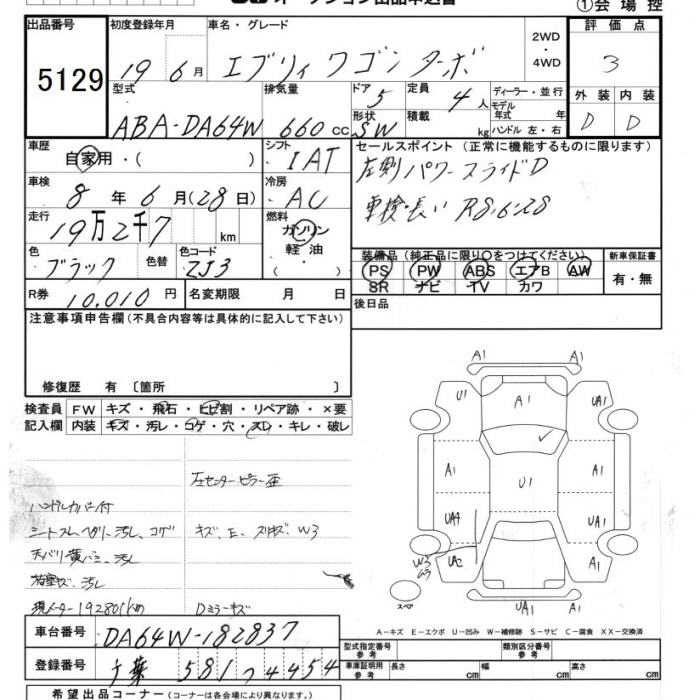 オークション出品申込書
①会場控
出品番号 5129
初度登録年月 19年6月
車名・グレード エブリィワゴン ターボ
2WD・4WD
評価点 3
型式 ABA-DA64W
排気量 660cc
ドア 5
形状 SW
定員 4人
積載 kg
ディーラー・並行
モデル年式 年
ハンドル 左・右
外装 D
内装 D
車歴 自家用・( )
シフト IAT
セールスポイント (正常に機能するものに限ります)
左側パワースライドD
車検・長い R8.6.28
車検 8年6月(28日)
冷房 AC
走行 19万2千7 km
燃料 ガソリン・軽油
色 ブラック
色替
色コード ZJ3
装備品 (純正品に限り○をつけてください)
PS PW ABS エアB AW
SR ナビ TV カワ
新車保証書 有・無
R券 10.010円
名変期限 月 日
後日品
注意事項申告欄(不具合内容等は具体的に記入して下さい)
修復歴 有 〔箇所 〕
検査員記入欄
FW キズ・飛石・ヒビ割・リペア跡・×要
内装 キズ・汚レ・コゲ・穴・スレ・キレ・破レ
左センターピラー歪
ハンドルカバー付
シートスレ、ヘタリ、汚レ、コゲ
キズ、E、スリキズ、W3
天バリ黄バミ、汚レ
荷室キズ、汚レ
現メーター192801km
Dミラーキズ
A1 A1
U1 A1 UA1
A1 U1 A1
UA4 UA1
W3
UA2 A1
スペア
UA1 A1
A-キズ E-エクボ U-凹み W-補修跡 S-サビ C-腐食 XX-交換済
車台番号 DA64W-182837
登録番号 千葉 581 フ 4454
型式指定番号 参考
類別区分番号 参考
車庫証明用 参考 長さ cm 幅 cm 高さ cm
希望出品コーナー (コーナーは各会場により異なります。)